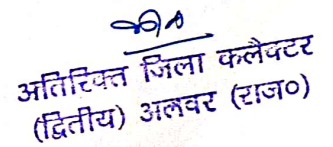 अतिरिक्त जिला कलैक्टर
(द्वितीय) अलवर (राज०)